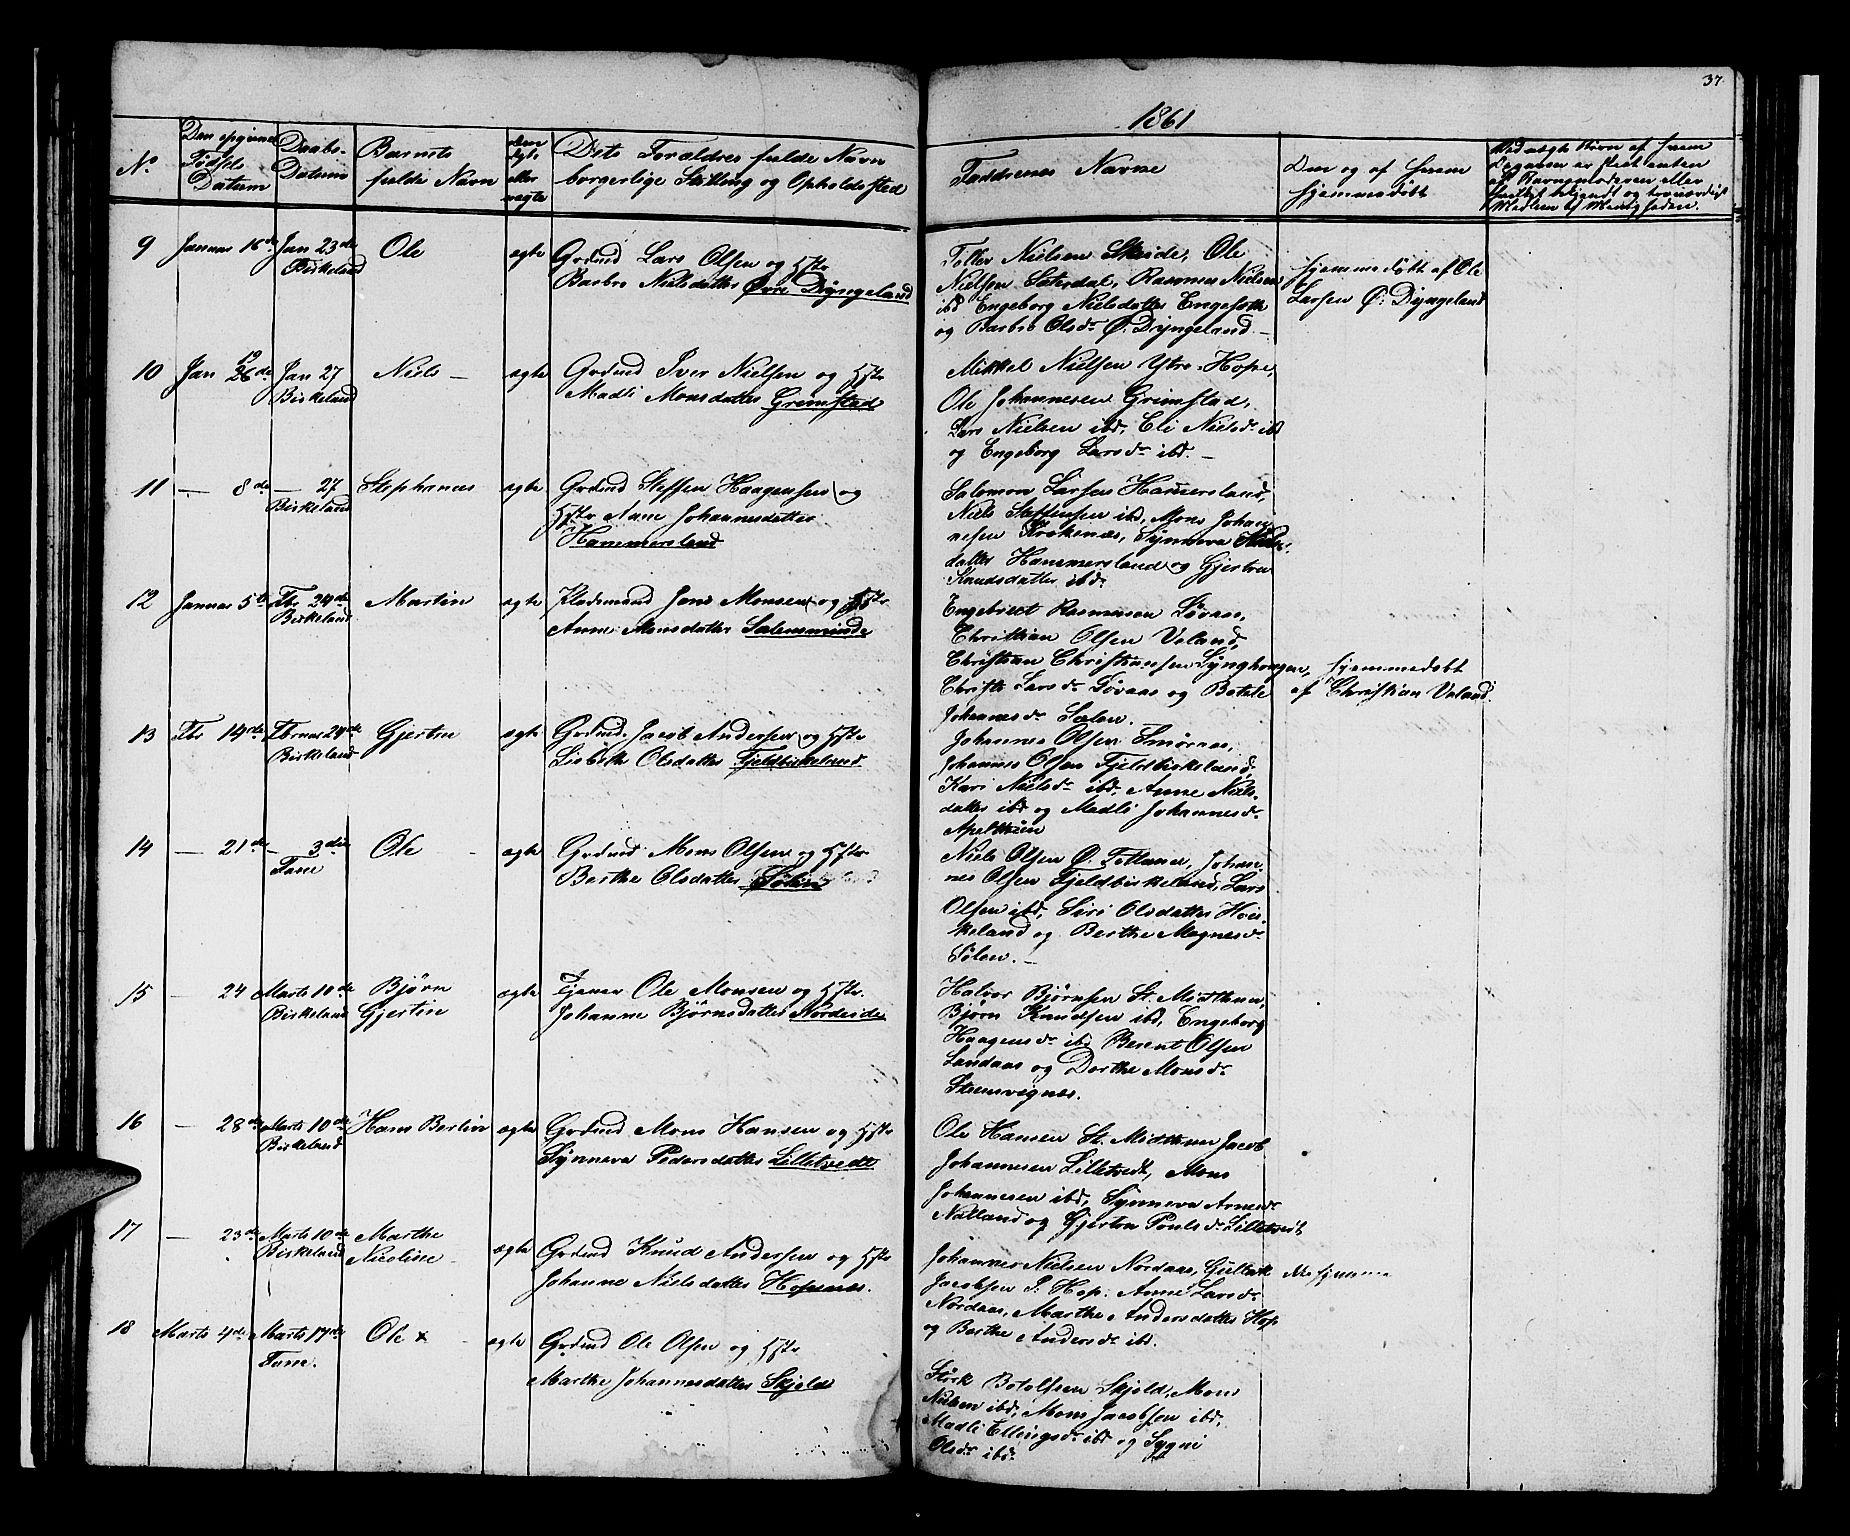 37.
1861
No
Den opgivne
Fødsels
Datum
Daabs-
Datum
Barnets
fulde Navn
om
ægte
eller
uægte
Dets Forældres fulde Navn
borgerlige Stilling og Opholdssted
Faddernes Navne
Om og af hvem
hjemmedøbt
Ved uægte Børn af hvem
9 Januar 16de Jan 23de Ole ægte Grdmd Lars Olsen og Hstr
Birkeland
Barbro Nielsdatter Øvre Dyngeland
Nielsen Skeide, Ole
Nielsen Sæterdal, Rasmus Nielsen
ibd Engeborg Nielsdatter
og Barbro Olsdr Ø. Dyngeland
hjemmedøbt af Ole
Larsen Ø. Dyngeland
10 Jan 19 26de Jan 27 Niels ægte Grdmd Iver Nielsen og Hstr
Birkeland
Madli Monsdatter Grimstad
Mikkel Nielsen Ytre-Hope,
Ole Johannesen Grimstad,
Lars Nielsen ibd, Eli Nielsdr ibd
og Engeborg Larsdr ibd.
11 — 8de — 27 Stephanus ægte Grdmd Steffen Haagensen og
Birkeland
Hstr Anne Johannesdatter
Hammersland
Salomon Larsen Hamersland,
Niels Steffensen ibd, Mons Johan-
nesen Krokenæs, Synneva
datter Hammersland og Gjertru
Knudsdatter ibd
12 Januar 5te Fbr 24de Martin ægte Pladsmand Jens Monsen og Hstr
Birkeland
Anne Monsdatter Sælensminde
Engebrect Rasmusen Løvaas,
Christian Olsen Veland,
Christian Christiansen Lynghougen,
Larsdr Løvaas og Botele
Johannesdr Sælen.
hjemmedøbt
af Christian Veland.
13 Fbr 14de Fbruar 24de Gjertin ægte Grdmd. Jacob Andersen og Hstr
Birkeland
Lisbeth Olsdatter Fjeldbirkeland
Johannes Olsen Smøraas,
Johannes Olsen Fjeldbirkeland,
Kari Nielsdr ibd, Anne Niels-
datter ibd og Madli Johannesdr
Apelthun
14 — 21de — 3die Ole ægte Grdmd Mons Olsen og Hstr
Fane
Berthe Olsdatter Titlestad
Niels Olsen Ø. Totland, Johan-
nes Olsen Fjeldbirkeland, Lars
Olsen ibd, Siri Olsdatter
og Berthe Magnesdr
15 — 24 Marts 10de Bjørn ægte Tjener Ole Monsen og Hstr.
Birkeland Gjertin
Johanne Bjørnsdatter Nordeide
Halvor Bjørnsen St. Midthun,
Bjørn Knudsen ibd, Engeborg
Haagensdr ibd Berent Olsen
Landaas og Dorthe Monsdr
Steensvignæs.
16 — 28de Marts 10de Hans Bertin ægte Grdmd Mons Hansen og Hstr
Birkeland
Synneva Pedersdatter Lilletvedt
Ole Hansen St. Midthun Jacob
Johannesen Lilletvedt, Mons
Johannesen ibd, Synneva Arnesdr
Natland og Gjertru Poulsdr Lilletvedt,
17 — 23de Marts 10de Marthe
Birkeland Nicoline ægte Grdmd Knud Andersen og Hstr
Johanne Nielsdatter Hopsnæs.
Johannes Nielsen Nordaas, Gullach
Jacobsen Hop. Anne Larsdr
Nordaas, Marthe Andersdatter Hop
og Berthe Andersdr ibd.
hjemme
18 Marts 4de Marts 17de Ole x ægte Grdmd Ole Olsen og Hstr
Fane.
Marthe Johannesdatter Skjold
Størk Botolfsen Skjold, Mons
Nielsen ibd, Mons Jacobsen ibd,
Madli Ellingsdr ibd og Sygni
Olsdr ibd.